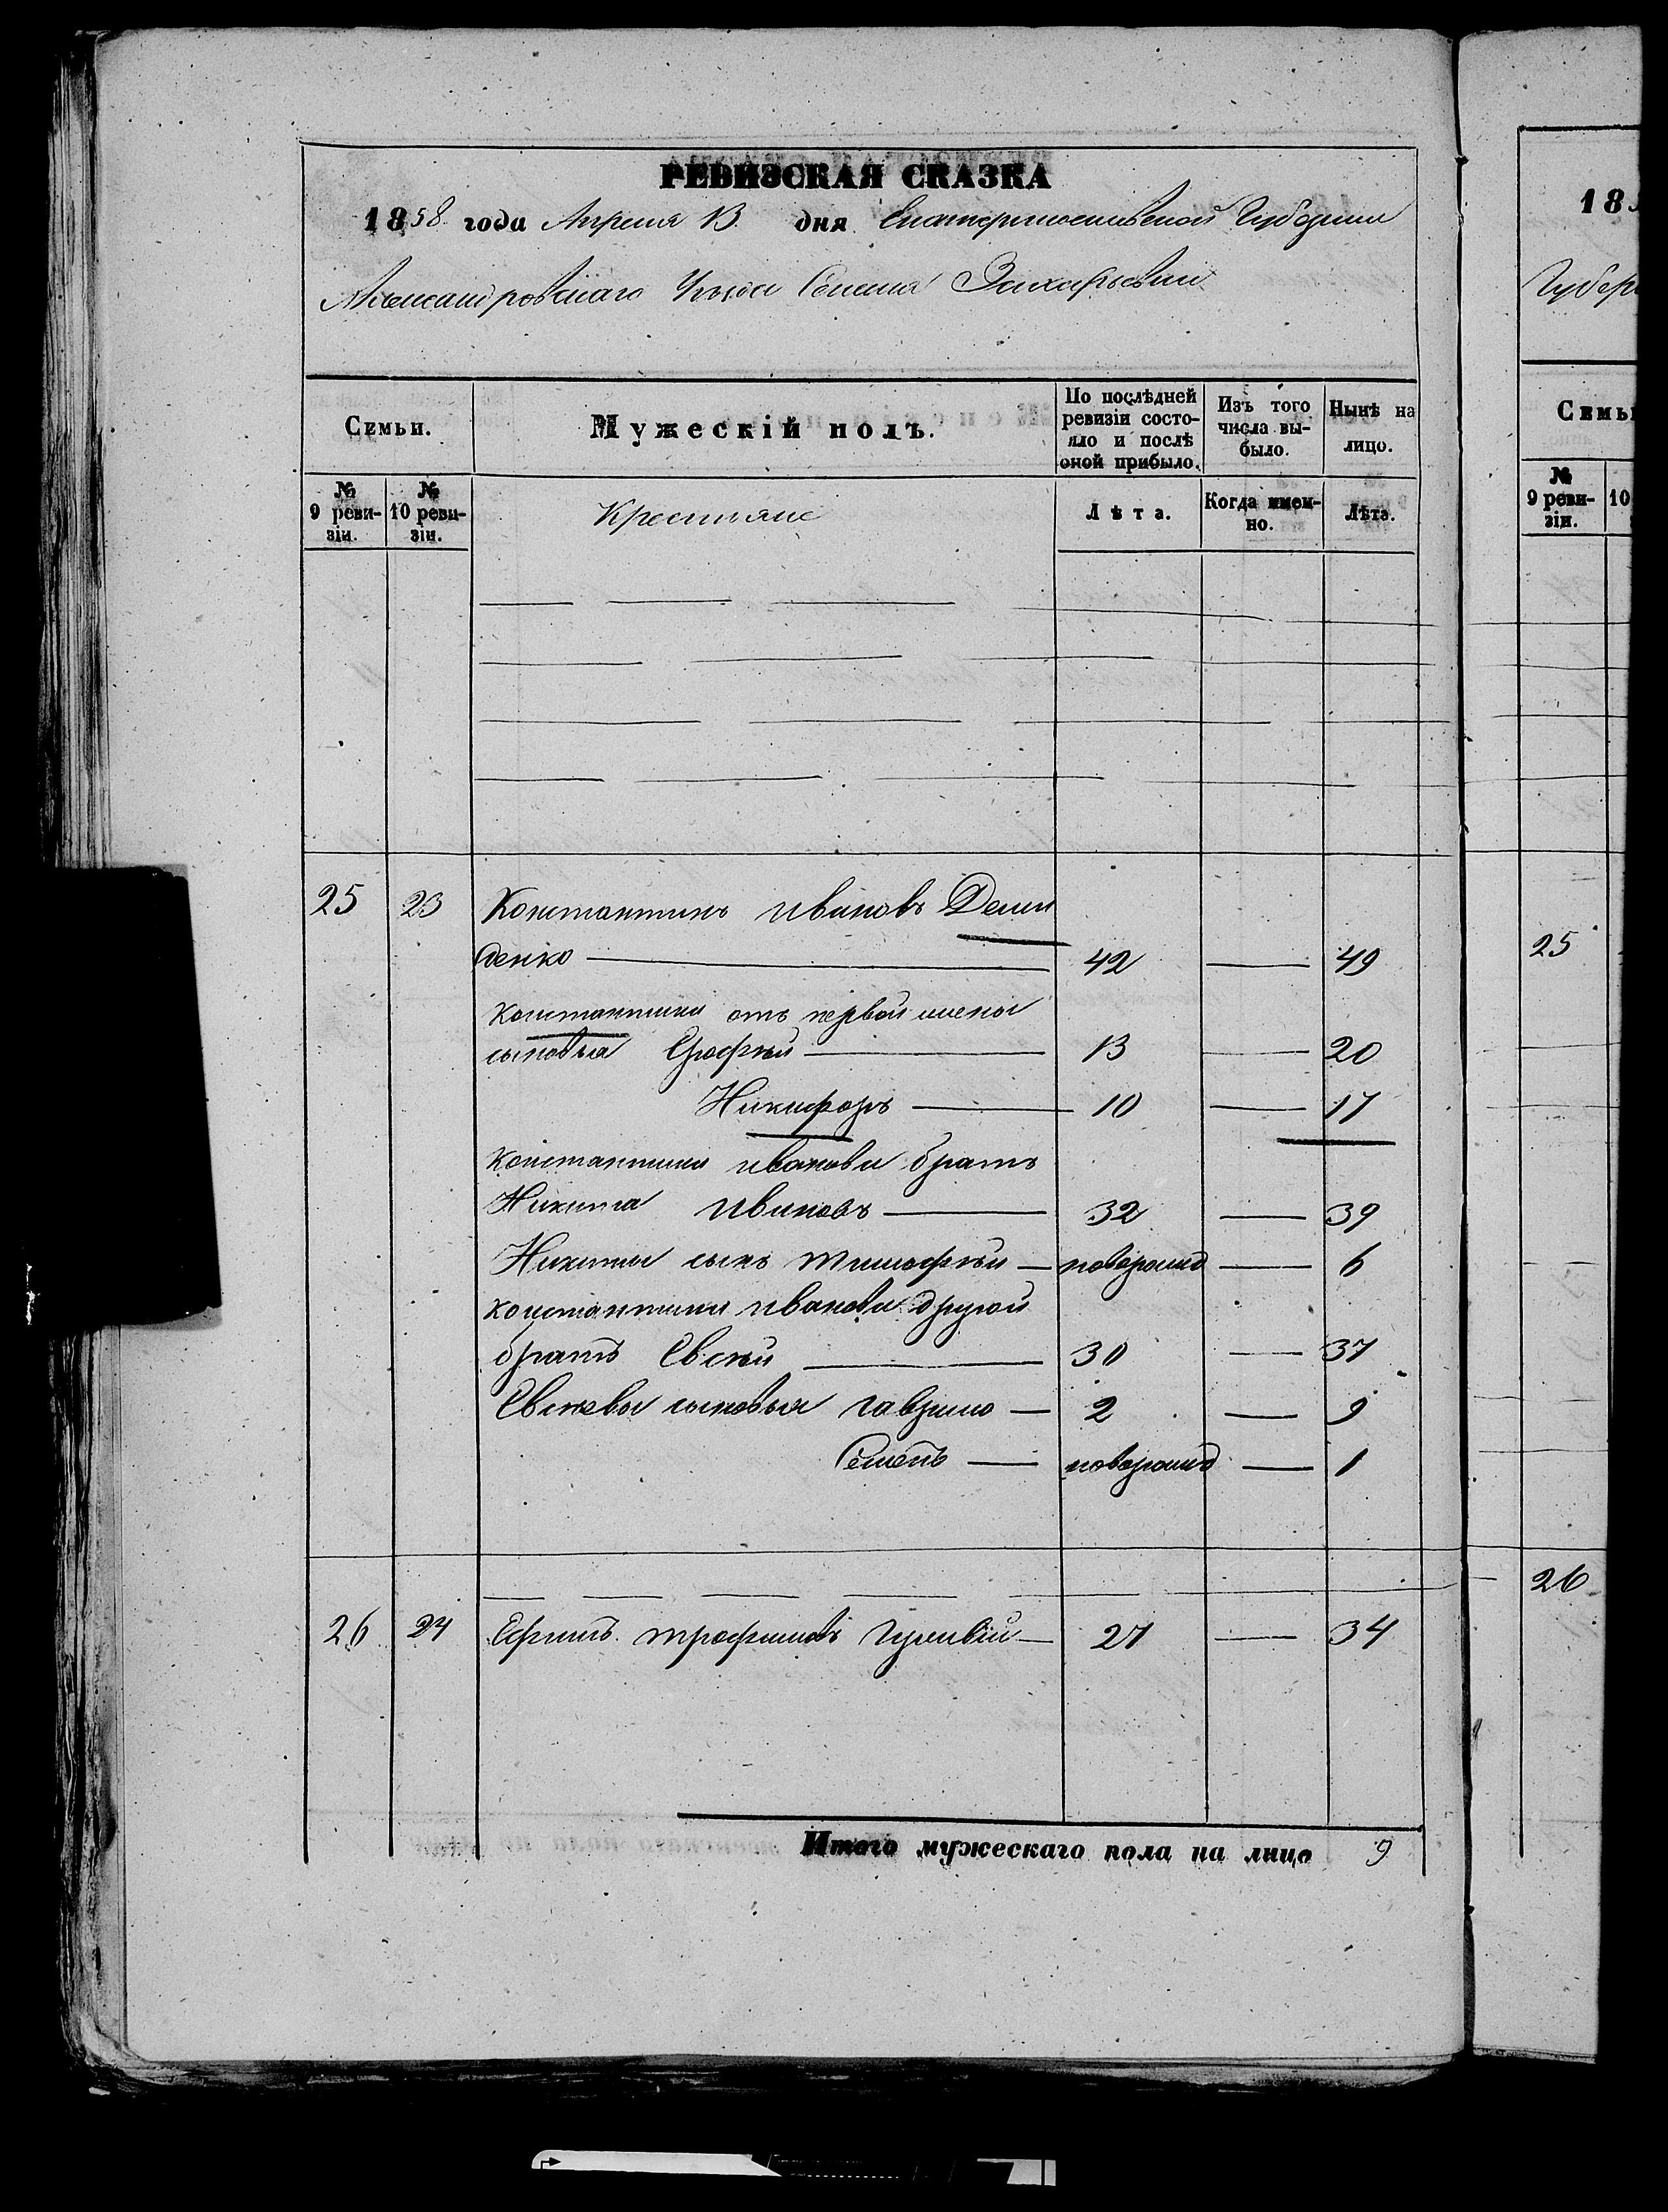 РЕВИЗСКАЯ СКАЗКА
1858 года Апреля 13 дня Екатеринославской Губернии
Александровскаго Уѣзда Селенія Захарьевки
Семьи.
Мужескій полъ.
По послѣдней ревизіи состояло и послѣ оной прибыло.
Изъ того числа выбыло.
Нынѣ на лицо.
№ 9 ревизіи.
№ 10 ревизіи.
Крестьяне
Лѣта.
Когда именно.
Лѣта.
25 23 Константинъ Ивановъ Деми
денко 42 — 49
Константина отъ первой жены
сыновья Ерофѣй — 13 — 20
Никифоръ — 10 — 17
Константина Иванова братъ
Никита Ивановъ — 32 — 39
Никиты сынъ Тимофѣй — новорожд — 6
Константина Иванова другой
братъ Евсѣй — 30 — 37
Евсѣевы сыновья Гаврило — 2 — 9
Семенъ — новорожд — 1
26 24 Ефимъ Трофимовъ — 27 — 34
Итого мужескаго пола на лицо 9
18
Губер
Семьи
№ 9 ревизіи.
10
25
26